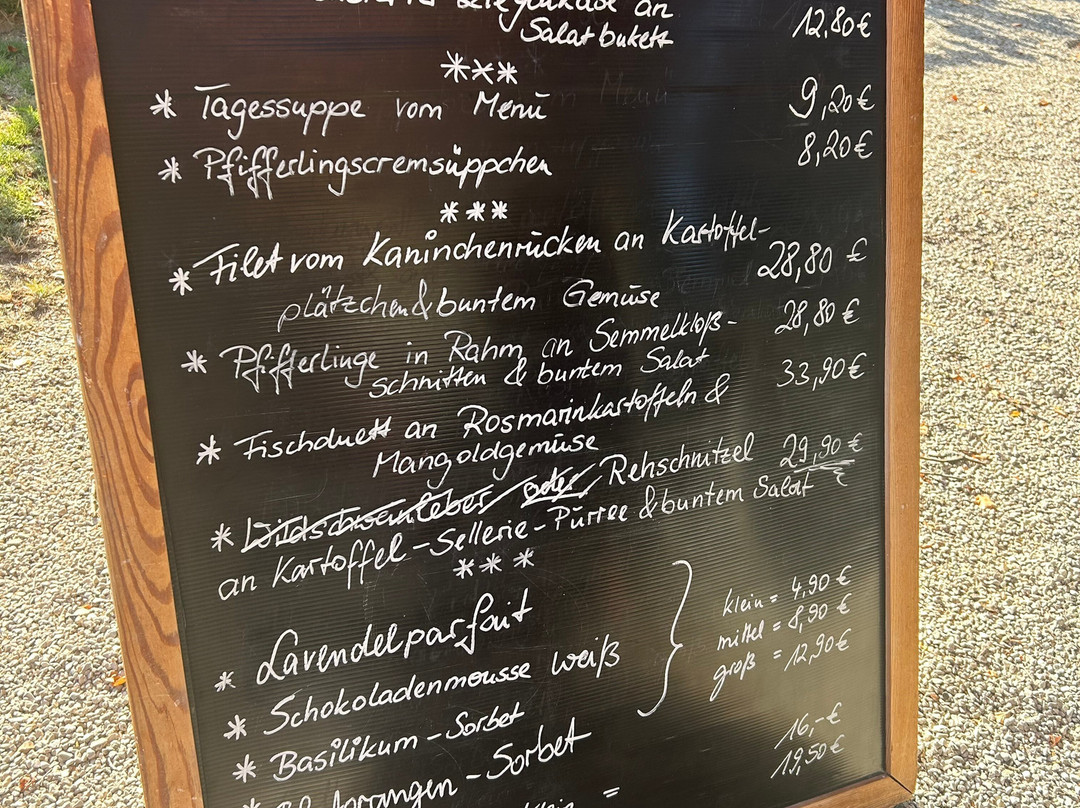 an
Salatbukett 12,80€
***
* Tagessuppe vom Menü 9,20€
* Pfifferlingscremsüppchen 8,20€
***
* Filet vom Kaninchenrücken an Kartoffel-
plätzchen & buntem Gemüse 28,80 €
* Pfifferlinge in Rahm an Semmelkloß-
schnitten & buntem Salat 28,80 €
* Fischduett an Rosmarinkartoffeln & 33,90€
Mangoldgemüse
* Wildschweinleber oder Rehschnitzel 29,90 €
an Kartoffel-Sellerie-Pürree & buntem Salat
***
* Lavendelparfait
* Schokoladenmousse weiß
* Basilikum-Sorbet
klein = 4,90 €
mittel = 8,90 €
groß = 12,90€
* Blutorangen-Sorbet
16,-€
klein =
19,50€